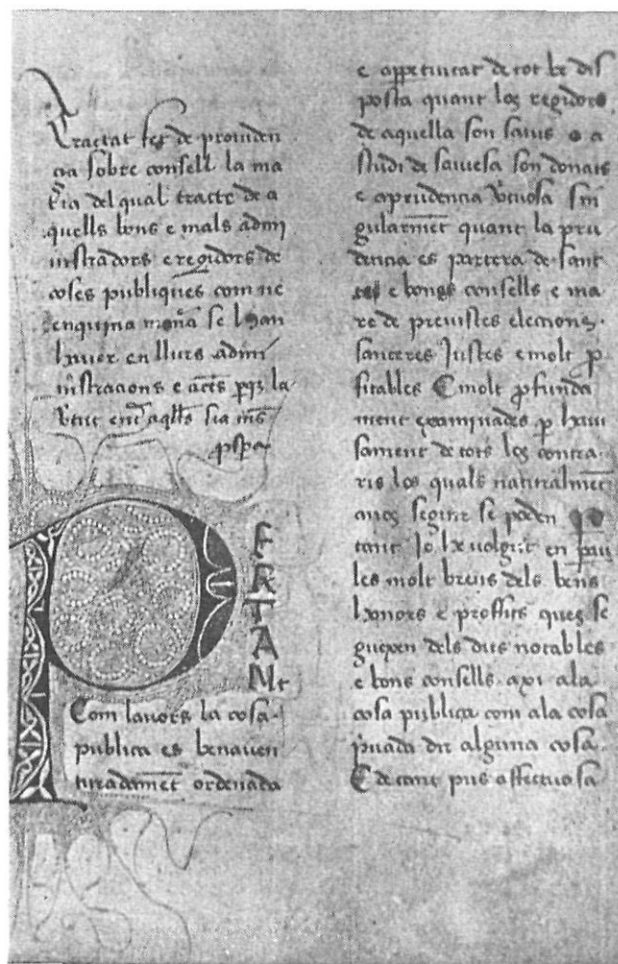 Tractat fet de prouiden
cia sobre consell la ma
t̃ia del qual tracte de a
quells bons e mals admj
nistradors e regidors de
coses publiques com ne
enquina man̄a se hgan
hauer en llurs admi
nistracions e actes perq̄ la
v̄tut en aq̄lls sia mes
pspa
P
ERTAMt
Com lauors la cosa
publica es benauen
turadamēt ordenada
e appetiuitat de tot be dis
posta quant los regidors
de aquella son sauis o a
studi de sauiesa son donats
e aprudencia v̄tuosa sin
gularmēt quant la pru
dencia es partera de sant
e bongs consells e ma
re de preuistes eleccions.
sanceres Justes e molt p
fitables E molt pfunda
ment examinades p hauj
sament de tots los contra
ris los quals naturalmēt
seguir se poden
tant Jo he volgut en pau
les molt breus dels bens
honors e proffits ques se
guexen dels dits notables
e bons consells axi ala
cosa publica com ala cosa
p̄uada dir alguna cosa.
E de tant pus affectuosa